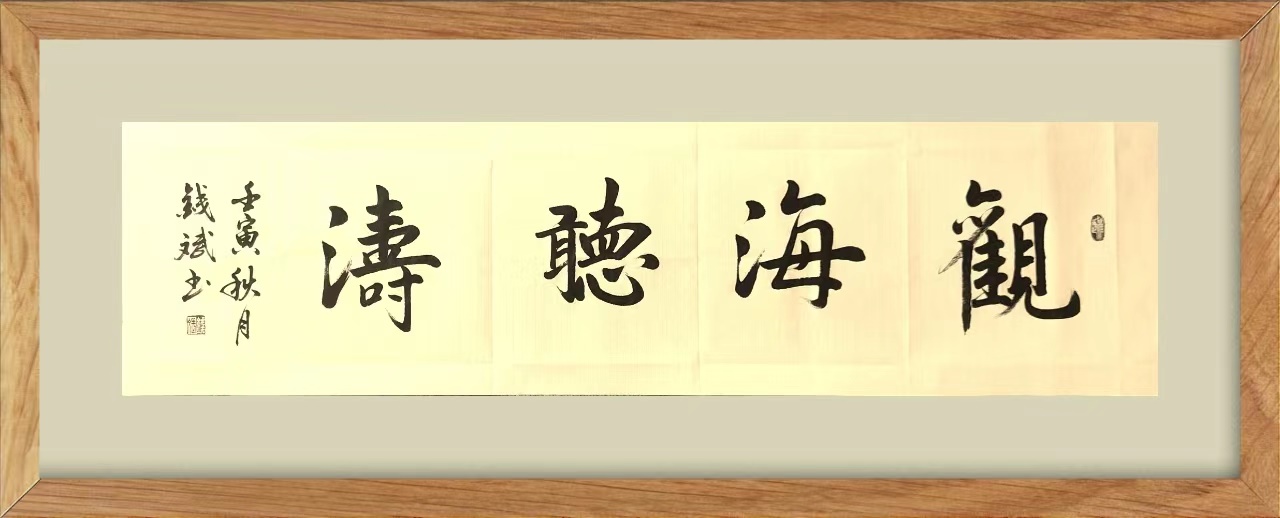 觀海聽濤
壬寅秋月
錢斌书